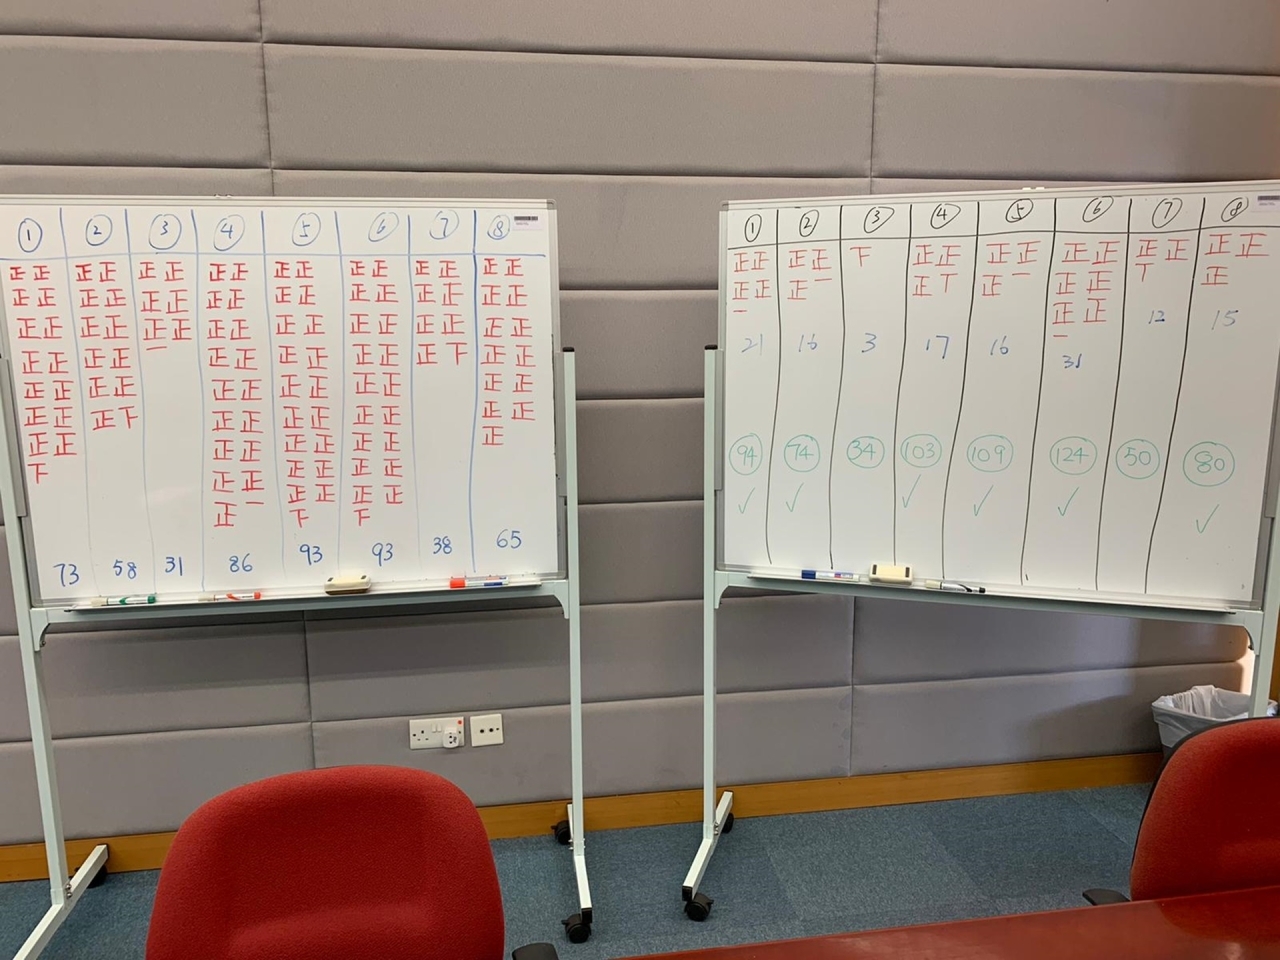 ① ② ③ ④ ⑤ ⑥ ⑦ ⑧
正正 正正 正正 正正 正正 正正 正正 正正
正正 正正 正正 正正 正正 正正 正正 正正
正正 正正 正正 正正 正正 正正 正正 正正
正正 正正 一 正正 正正 正正 正下 正正
正正 正正 正正 正正 正正 正正
正正 正下 正正 正正 正正 正正
正正 正正 正正 正正 正
下 正正 正正 正正
正一 正正 正正
下 下
73 58 31 86 93 93 38 65
① ② ③ ④ ⑤ ⑥ ⑦ ⑧
正正 正正 下 正正 正正 正正 正正 正正
正正 正一 正丅 正一 正正 丅 正
一 正正
一
21 16 3 17 16 31 12 15
94 74 34 103 109 124 50 80
✓ ✓ ✓ ✓ ✓ ✓